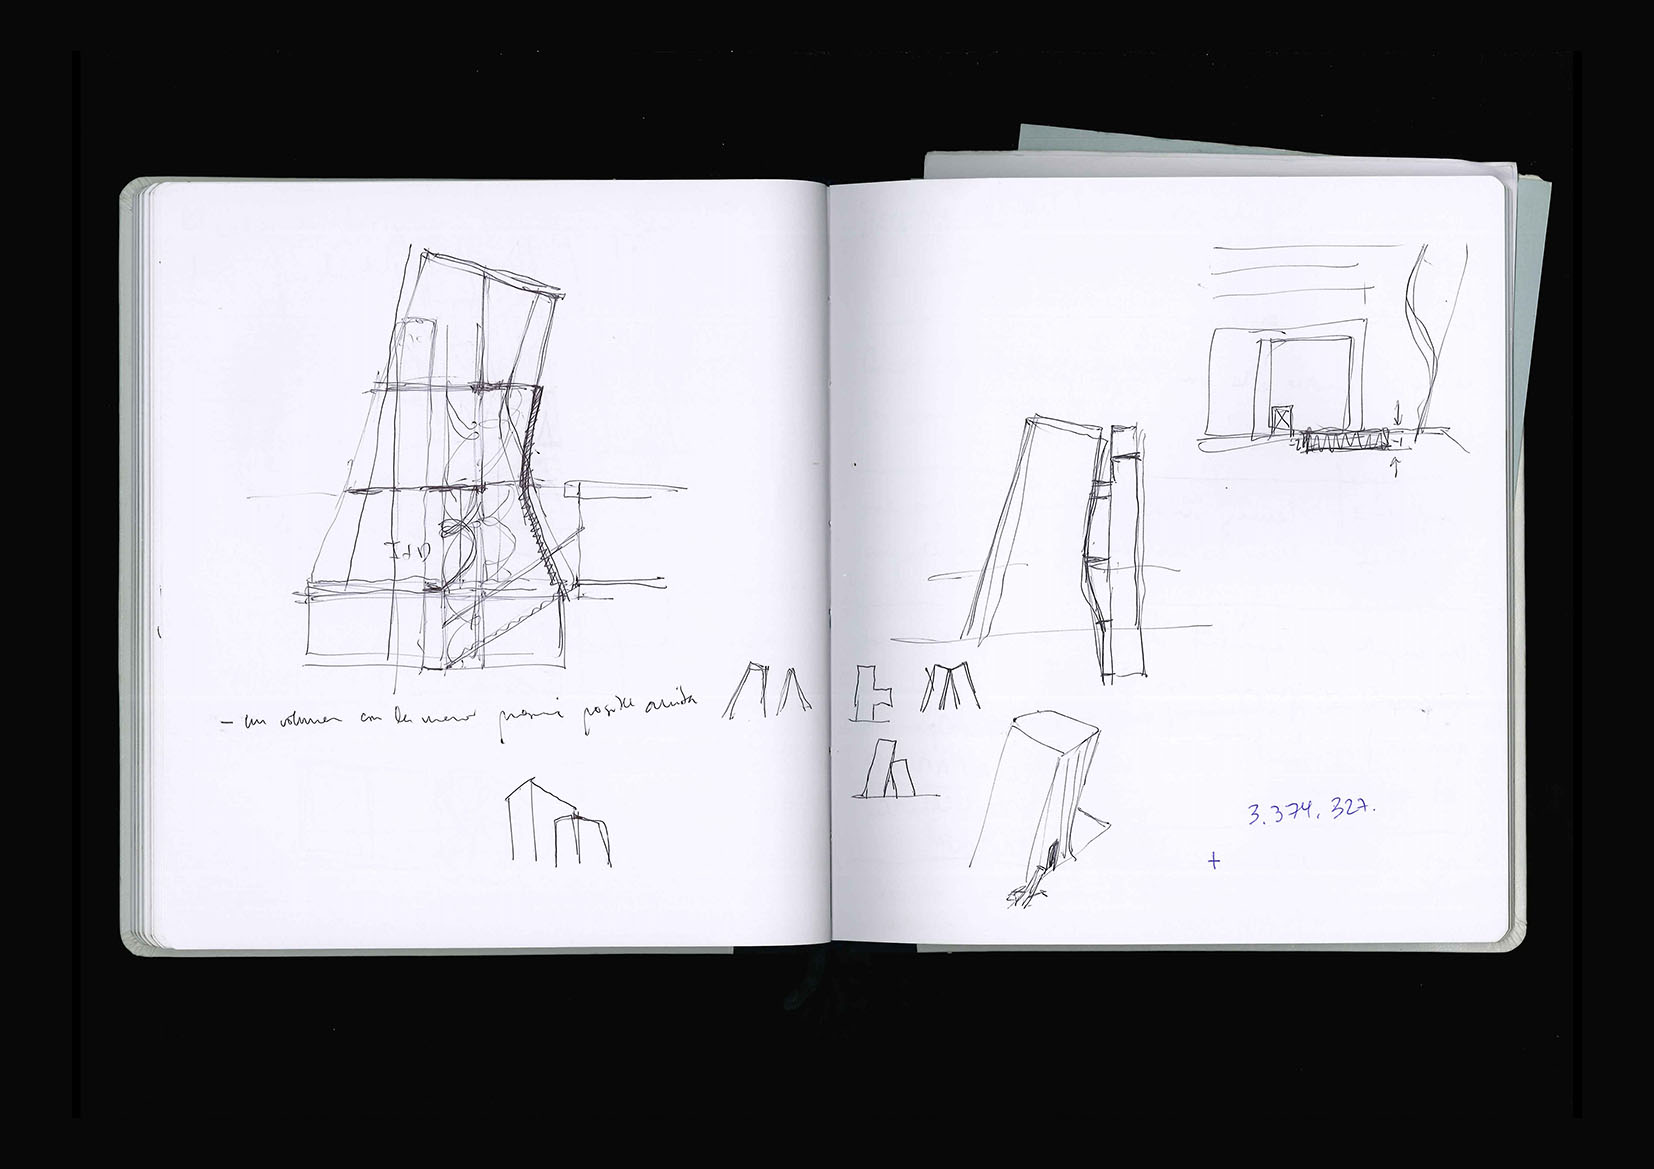 I+D
- un volumen con la menor presencia posible arriba
3.374.327.
+